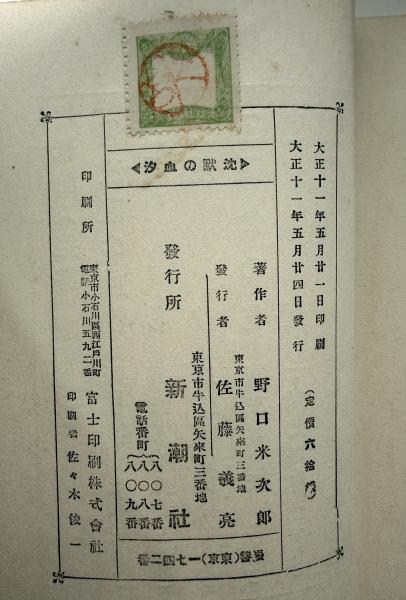 大正十一年五月廿一日印刷
大正十一年五月廿四日發行
(定價六拾錢)
《沈默の血汐》
著作者 野口米次郎
東京市牛込區矢來町三番地
發行者 佐藤義亮
東京市牛込區矢來町三番地
發行所 新潮社
電話番町
八〇七番
八〇八番
八〇九番
振替(東京)一七四二番
印刷所
東京市小石川區西江戸川町
電話小石川五九二番
富士印刷株式會社
印刷者 佐々木俊一